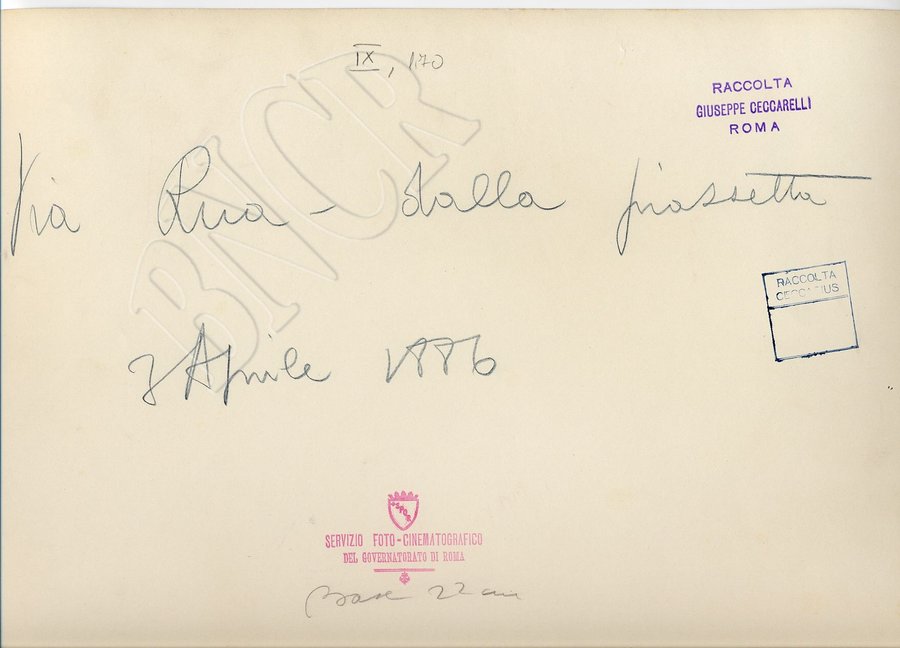 IX, 170
RACCOLTA
GIUSEPPE CECCARELLI
ROMA
BNCR
Via Rua - dalla piazzetta
RACCOLTA
CECCARIUS
7 Aprile 1886
SPQR
SERVIZIO FOTO-CINEMATOGRAFICO
DEL GOVERNATORATO DI ROMA
Base 22 cm